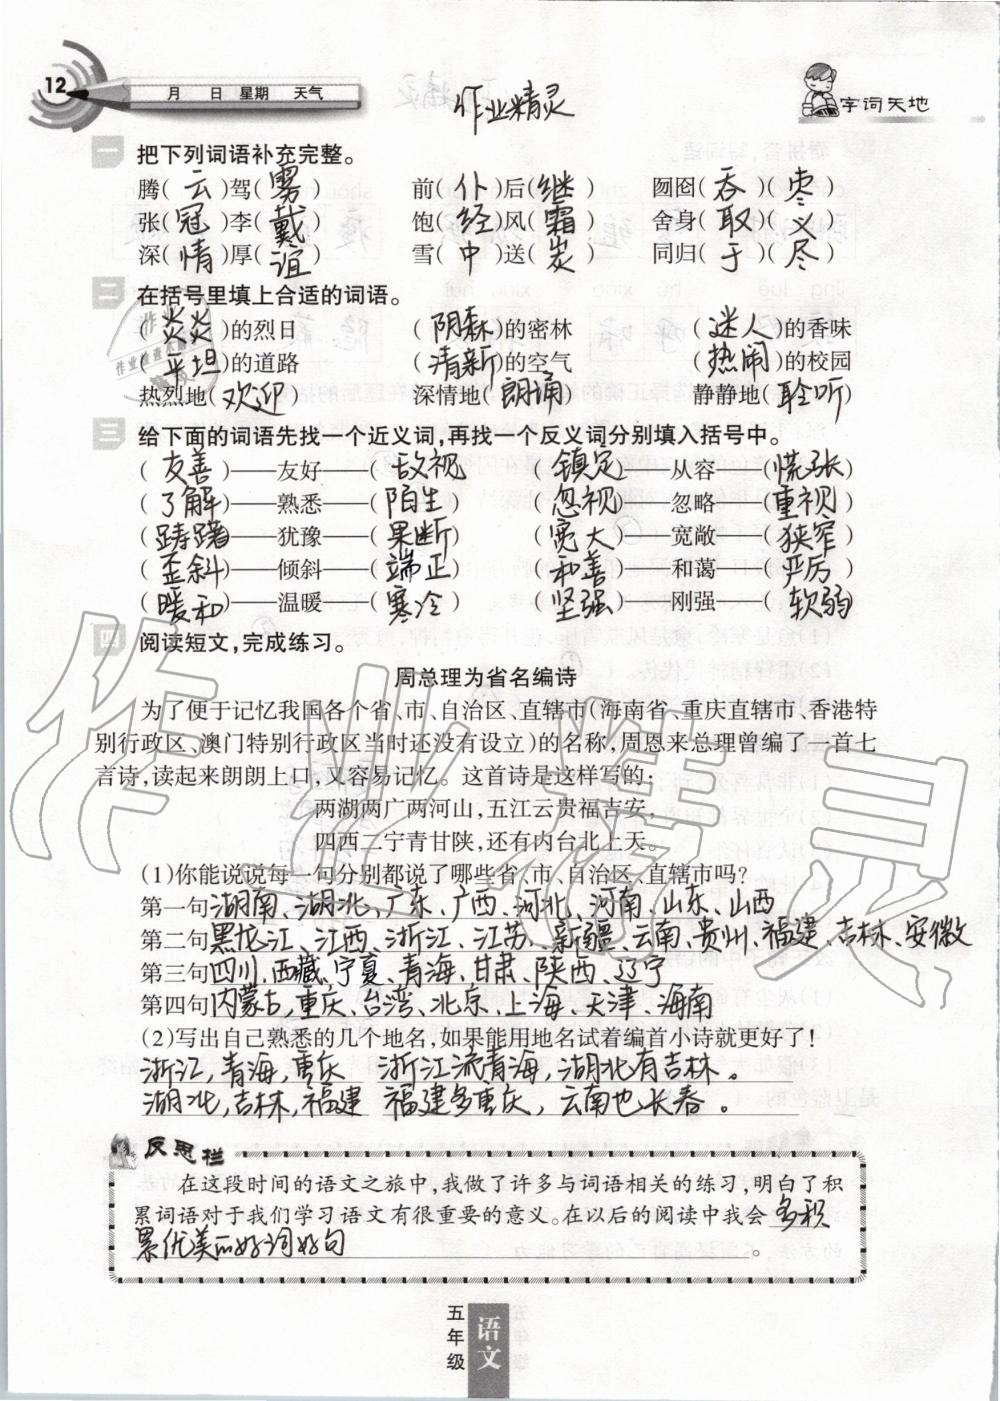 12
月 日 星期 天气
作业精灵
字词天地
一 把下列词语补充完整。
腾(云)驾(雾) 前(仆)后(继) 囫囵(吞)(枣)
张(冠)李(戴) 饱(经)风(霜) 舍身(取)(义)
深(情)厚(谊) 雪(中)送(炭) 同归(于)(尽)
二 在括号里填上合适的词语。
(炎炎)的烈日 (阴森)的密林 (迷人)的香味
(平坦)的道路 (清新)的空气 (热闹)的校园
热烈地(欢迎) 深情地(朗诵) 静静地(聆听)
三 给下面的词语先找一个近义词,再找一个反义词分别填入括号中。
(友善)——友好——(敌视) (镇定)——从容——(慌张)
(了解)——熟悉——(陌生) (忽视)——忽略——(重视)
(踌躇)——犹豫——(果断) (宽大)——宽敞——(狭窄)
(歪斜)——倾斜——(端正) (和善)——和蔼——(严厉)
(暖和)——温暖——(寒冷) (坚强)——刚强——(软弱)
四 阅读短文,完成练习。
周总理为省名编诗
为了便于记忆我国各个省、市、自治区、直辖市(海南省、重庆直辖市、香港特
别行政区、澳门特别行政区当时还没有设立)的名称,周恩来总理曾编了一首七
言诗,读起来朗朗上口,又容易记忆。这首诗是这样写的:
两湖两广两河山,五江云贵福吉安,
四西二宁青甘陕,还有内台北上天。
(1)你能说说每一句分别都说了哪些省、市、自治区、直辖市吗?
第一句湖南、湖北、广东、广西、河北、河南、山东、山西
第二句黑龙江、江西、浙江、江苏、新疆、云南、贵州、福建、吉林、安徽
第三句四川、西藏、宁夏、青海、甘肃、陕西、辽宁
第四句内蒙古、重庆、台湾、北京、上海、天津、海南
(2)写出自己熟悉的几个地名,如果能用地名试着编首小诗就更好了!
浙江,青海,重庆 浙江流青海,湖北有吉林。
湖北,吉林,福建 福建多重庆,云南也长春。
反思栏
在这段时间的语文之旅中,我做了许多与词语相关的练习,明白了积
累词语对于我们学习语文有很重要的意义。在以后的阅读中我会 多积
累优美的好词好句。
五年级
语文
作业精灵